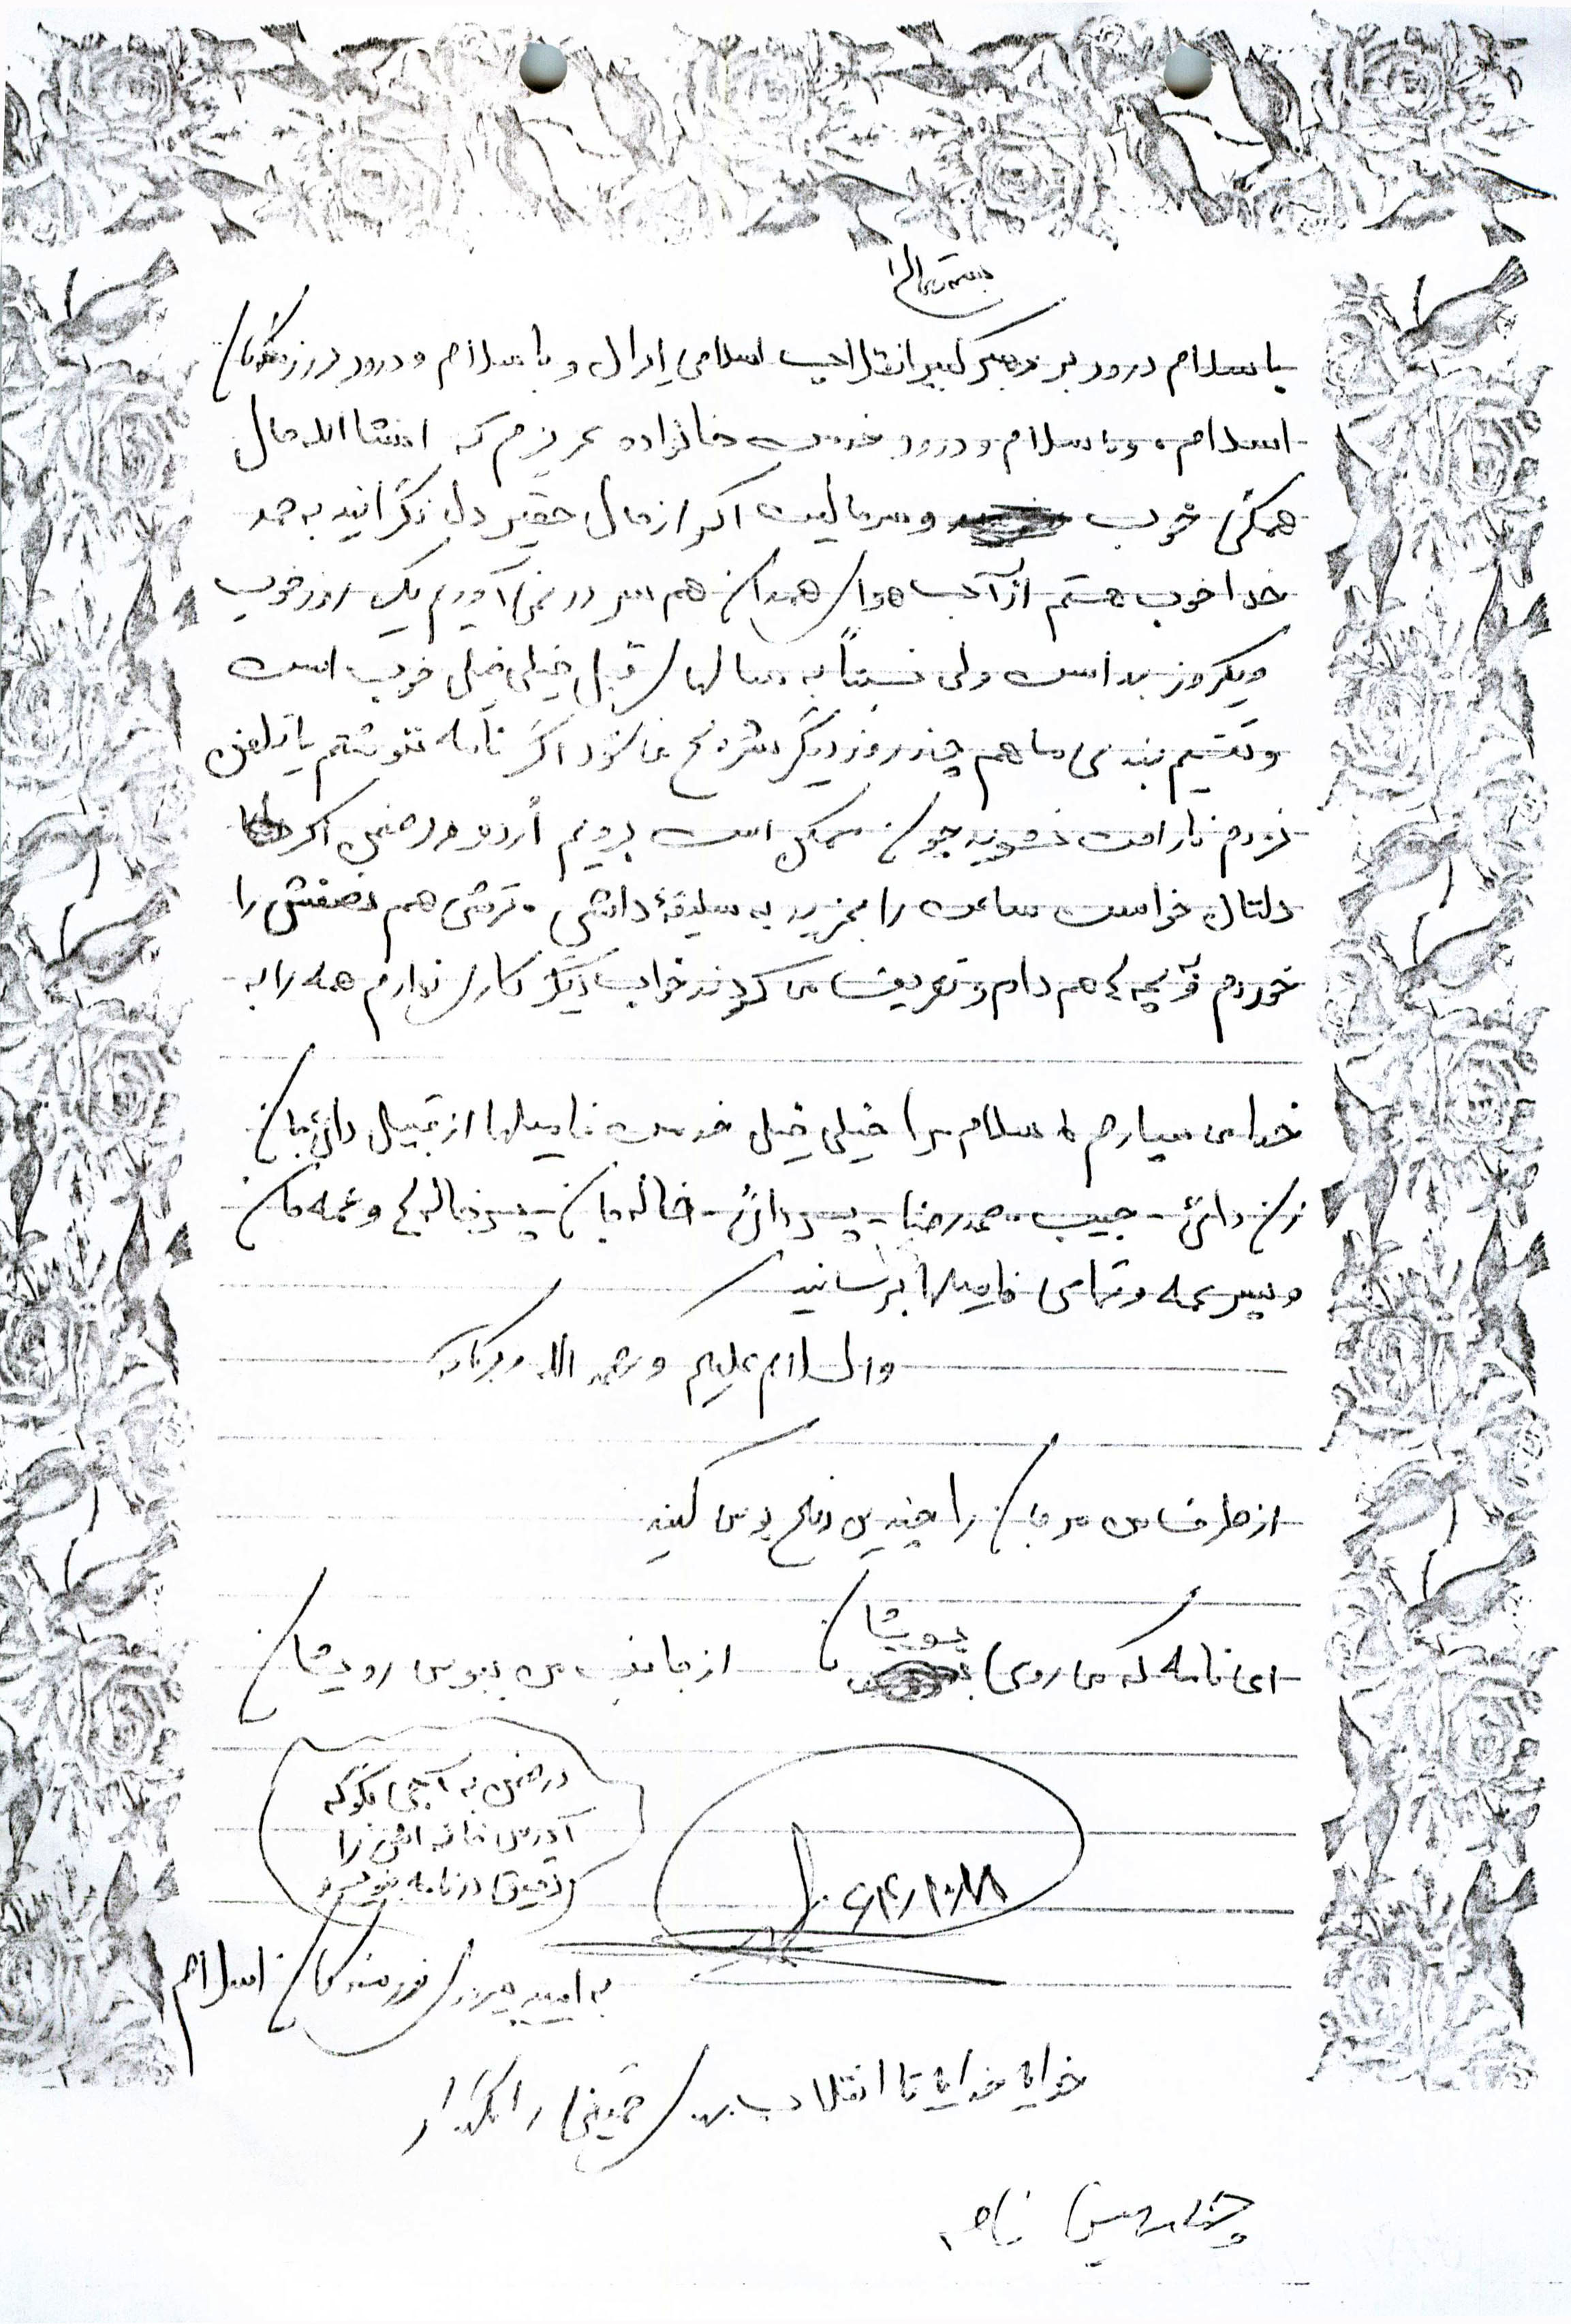 بسمه تعالی
با سلام درود بر رهبر کبیر انقلاب اسلامی ایران و با سلام و درود بر رزمندگان
اسلام، و با سلام و درود خدمت خانواده عزیزم که انشاالله حال
همگی خوب و سر حالیت اگر از حال حقیر دل نگرانید به حمد
خدا خوب هستم از آب هوای همدان هم سر در نمی آورم یک روز خوب
ویکروز بد است ولی نسبتاً به سالهای قبل خیلی خیلی خوب است
و تقسیم بندی ما هم چند روز دیگر شروع می شود اگر نامه ننوشتم یا تلفن
نزدم ناراحت نشوید چون ممکن است برویم اُردو در ضمن اگر
دلتان خواست ساعت را بخرید به سلیقۀ داداش . ترشی هم نصفش را
خوردم و بچه ها هم دادم و تعریف می کردند خوب دیگر کاری ندارم همه را به
خدا می سپارم سلام مرا خیلی خیلی خدمت فامیلها از قبیل دائی جان
زن دائی - حبیب - حمدرضا - پسر دائی - خاله جان - پسر خاله ها و عمه جان
و پسر عمه و تمامی فامیلها برسانید
والسلام علیکم و رحمه الله و برکاته
از طرف من مرجان را چندین دفعه بوس کنید
ای نامه که می روی بسویشان از جانب من ببوس رویشان
۶۴/۱۰/۱۸
در ضمن به آبجی بگو که
آدرس خانه اش را
دقیق در نامه بنویسد
به امید پیروزی رزمندگان اسلام
خدایا خدایا تا انقلاب مهدی خمینی را نگهدار